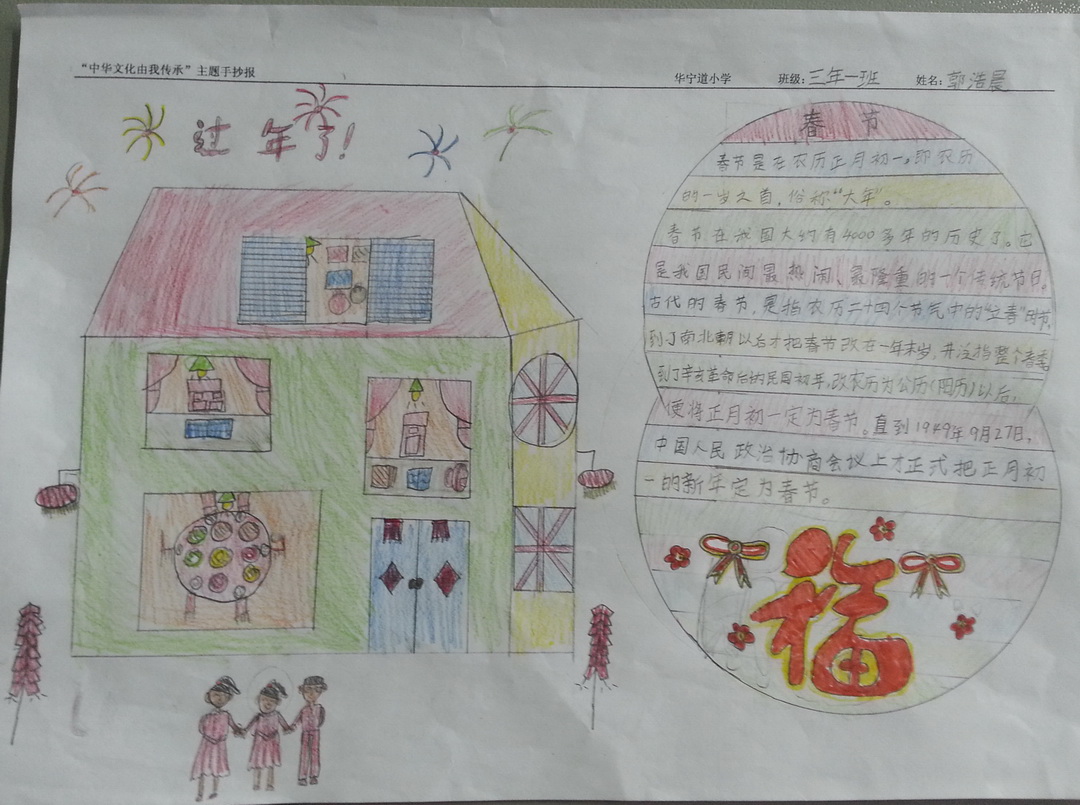 “中华文化由我传承”主题手抄报
华宁道小学 班级:三年一班 姓名:郭浩晨
过年了!
春节
春节是在农历正月初一,即农历
的一岁之首,俗称“大年”。
春节在我国大约有4000多年的历史了。它
是我国民间最热闹、最隆重的一个传统节日。
古代的春节,是指农历二十四个节气中的“立春”时节,
到了南北朝以后才把春节改在一年末岁,并泛指整个春季,
到了辛亥革命后的民国初年,改农历为公历(阳历)以后,
便将正月初一定为春节。直到1949年9月27日,
中国人民政治协商会议上才正式把正月初
一的新年定为春节。
福